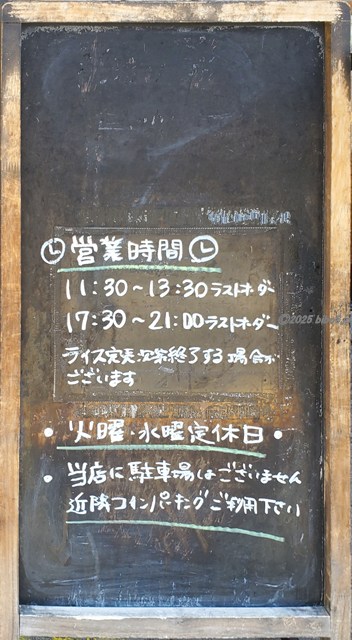 営業時間
11:30～13:30ラストオーダー
17:30～21:00ラストオーダー
ライス完売次第終了する場合が
ございます
・火曜・水曜定休日・
・当店に駐車場はございません
近隣コインパーキングご利用下さい
©2025